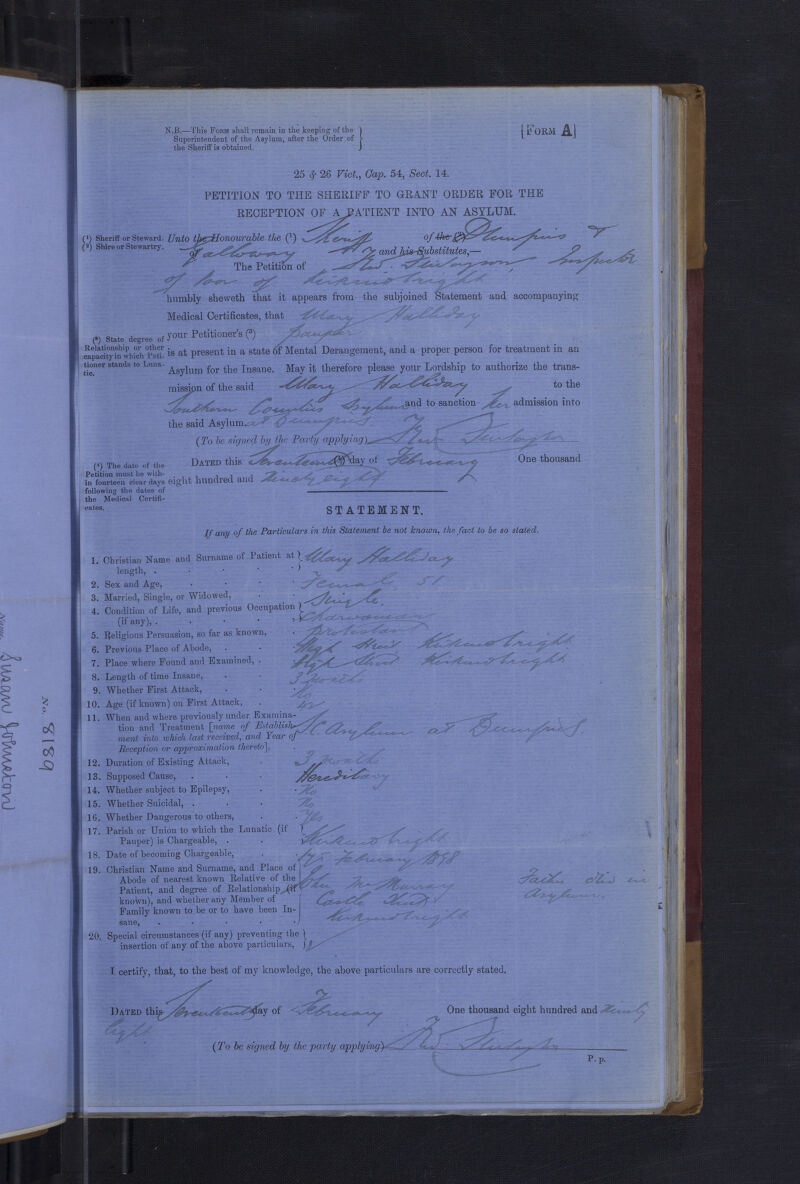 N.B.—This Form shall remain in the keeping of the
Superintendent of the Asylum, after the Order of
the Sheriff is obtained.
[FORM A]
25 & 26 Vict., Cap. 54, Sect. 14.
PETITION TO THE SHERIFF TO GRANT ORDER FOR THE
RECEPTION OF A PATIENT INTO AN ASYLUM.
(1) Sheriff or Steward.
(2) Shire or Stewartry.
Unto the Honourable the (1) Sheriff of the (2) Dumfries &
Galloway and his Substitutes,—
The Petition of Inspector
of Poor of Kirkcudbright
humbly sheweth that it appears from the subjoined Statement and accompanying
Medical Certificates, that Mary Halliday
(3) State degree of
Relationship or other
capacity in which Peti-
tioner stands to Luna-
tic.
your Petitioner's (3) pauper
is at present in a state of Mental Derangement, and a proper person for treatment in an
Asylum for the Insane. May it therefore please your Lordship to authorize the trans-
mission of the said Mary Halliday to the
Southern Counties Asylum and to sanction her admission into
the said Asylum. at Dumfries
(To be signed by the Party applying)
(4) The date of the
Petition must be with-
in fourteen clear days
following the dates of
the Medical Certifi-
cates.
DATED this Seventeenth (4) day of February One thousand
eight hundred and ninety eight
STATEMENT.
If any of the Particulars in this Statement be not known, the fact to be so stated.
1. Christian Name and Surname of Patient at length, . Mary Halliday
2. Sex and Age, Female 51
3. Married, Single, or Widowed, Single.
4. Condition of Life, and previous Occupation (if any), . Charwoman
5. Religious Persuasion, so far as known, Protestant
6. Previous Place of Abode, . High Street Kirkcudbright
7. Place where Found and Examined, . High Street Kirkcudbright
8. Length of time Insane, 3 months
9. Whether First Attack, No
10. Age (if known) on First Attack, 42
11. When and where previously under Examina-
tion and Treatment [name of Establish-
ment into which last received, and Year of
Reception or approximation thereto], S.C. Asylum at Dumfries
12. Duration of Existing Attack, 3 months
13. Supposed Cause, . Hereditary
14. Whether subject to Epilepsy, No
15. Whether Suicidal, . No
16. Whether Dangerous to others, Yes
17. Parish or Union to which the Lunatic (if
Pauper) is Chargeable, . Kirkcudbright
18. Date of becoming Chargeable, 17 February 1898
19. Christian Name and Surname, and Place of
Abode of nearest known Relative of the
Patient, and degree of Relationship (if
known), and whether any Member of
Family known to be or to have been In-
sane, John McMurray
Castle Street
Kirkcudbright
Father died in
Asylum.
20. Special circumstances (if any) preventing the
insertion of any of the above particulars,
I certify, that, to the best of my knowledge, the above particulars are correctly stated.
DATED this Seventeenth day of February One thousand eight hundred and ninety
eight
(To be signed by the party applying)
P. p.
No. 8189
Name Susan Johnston